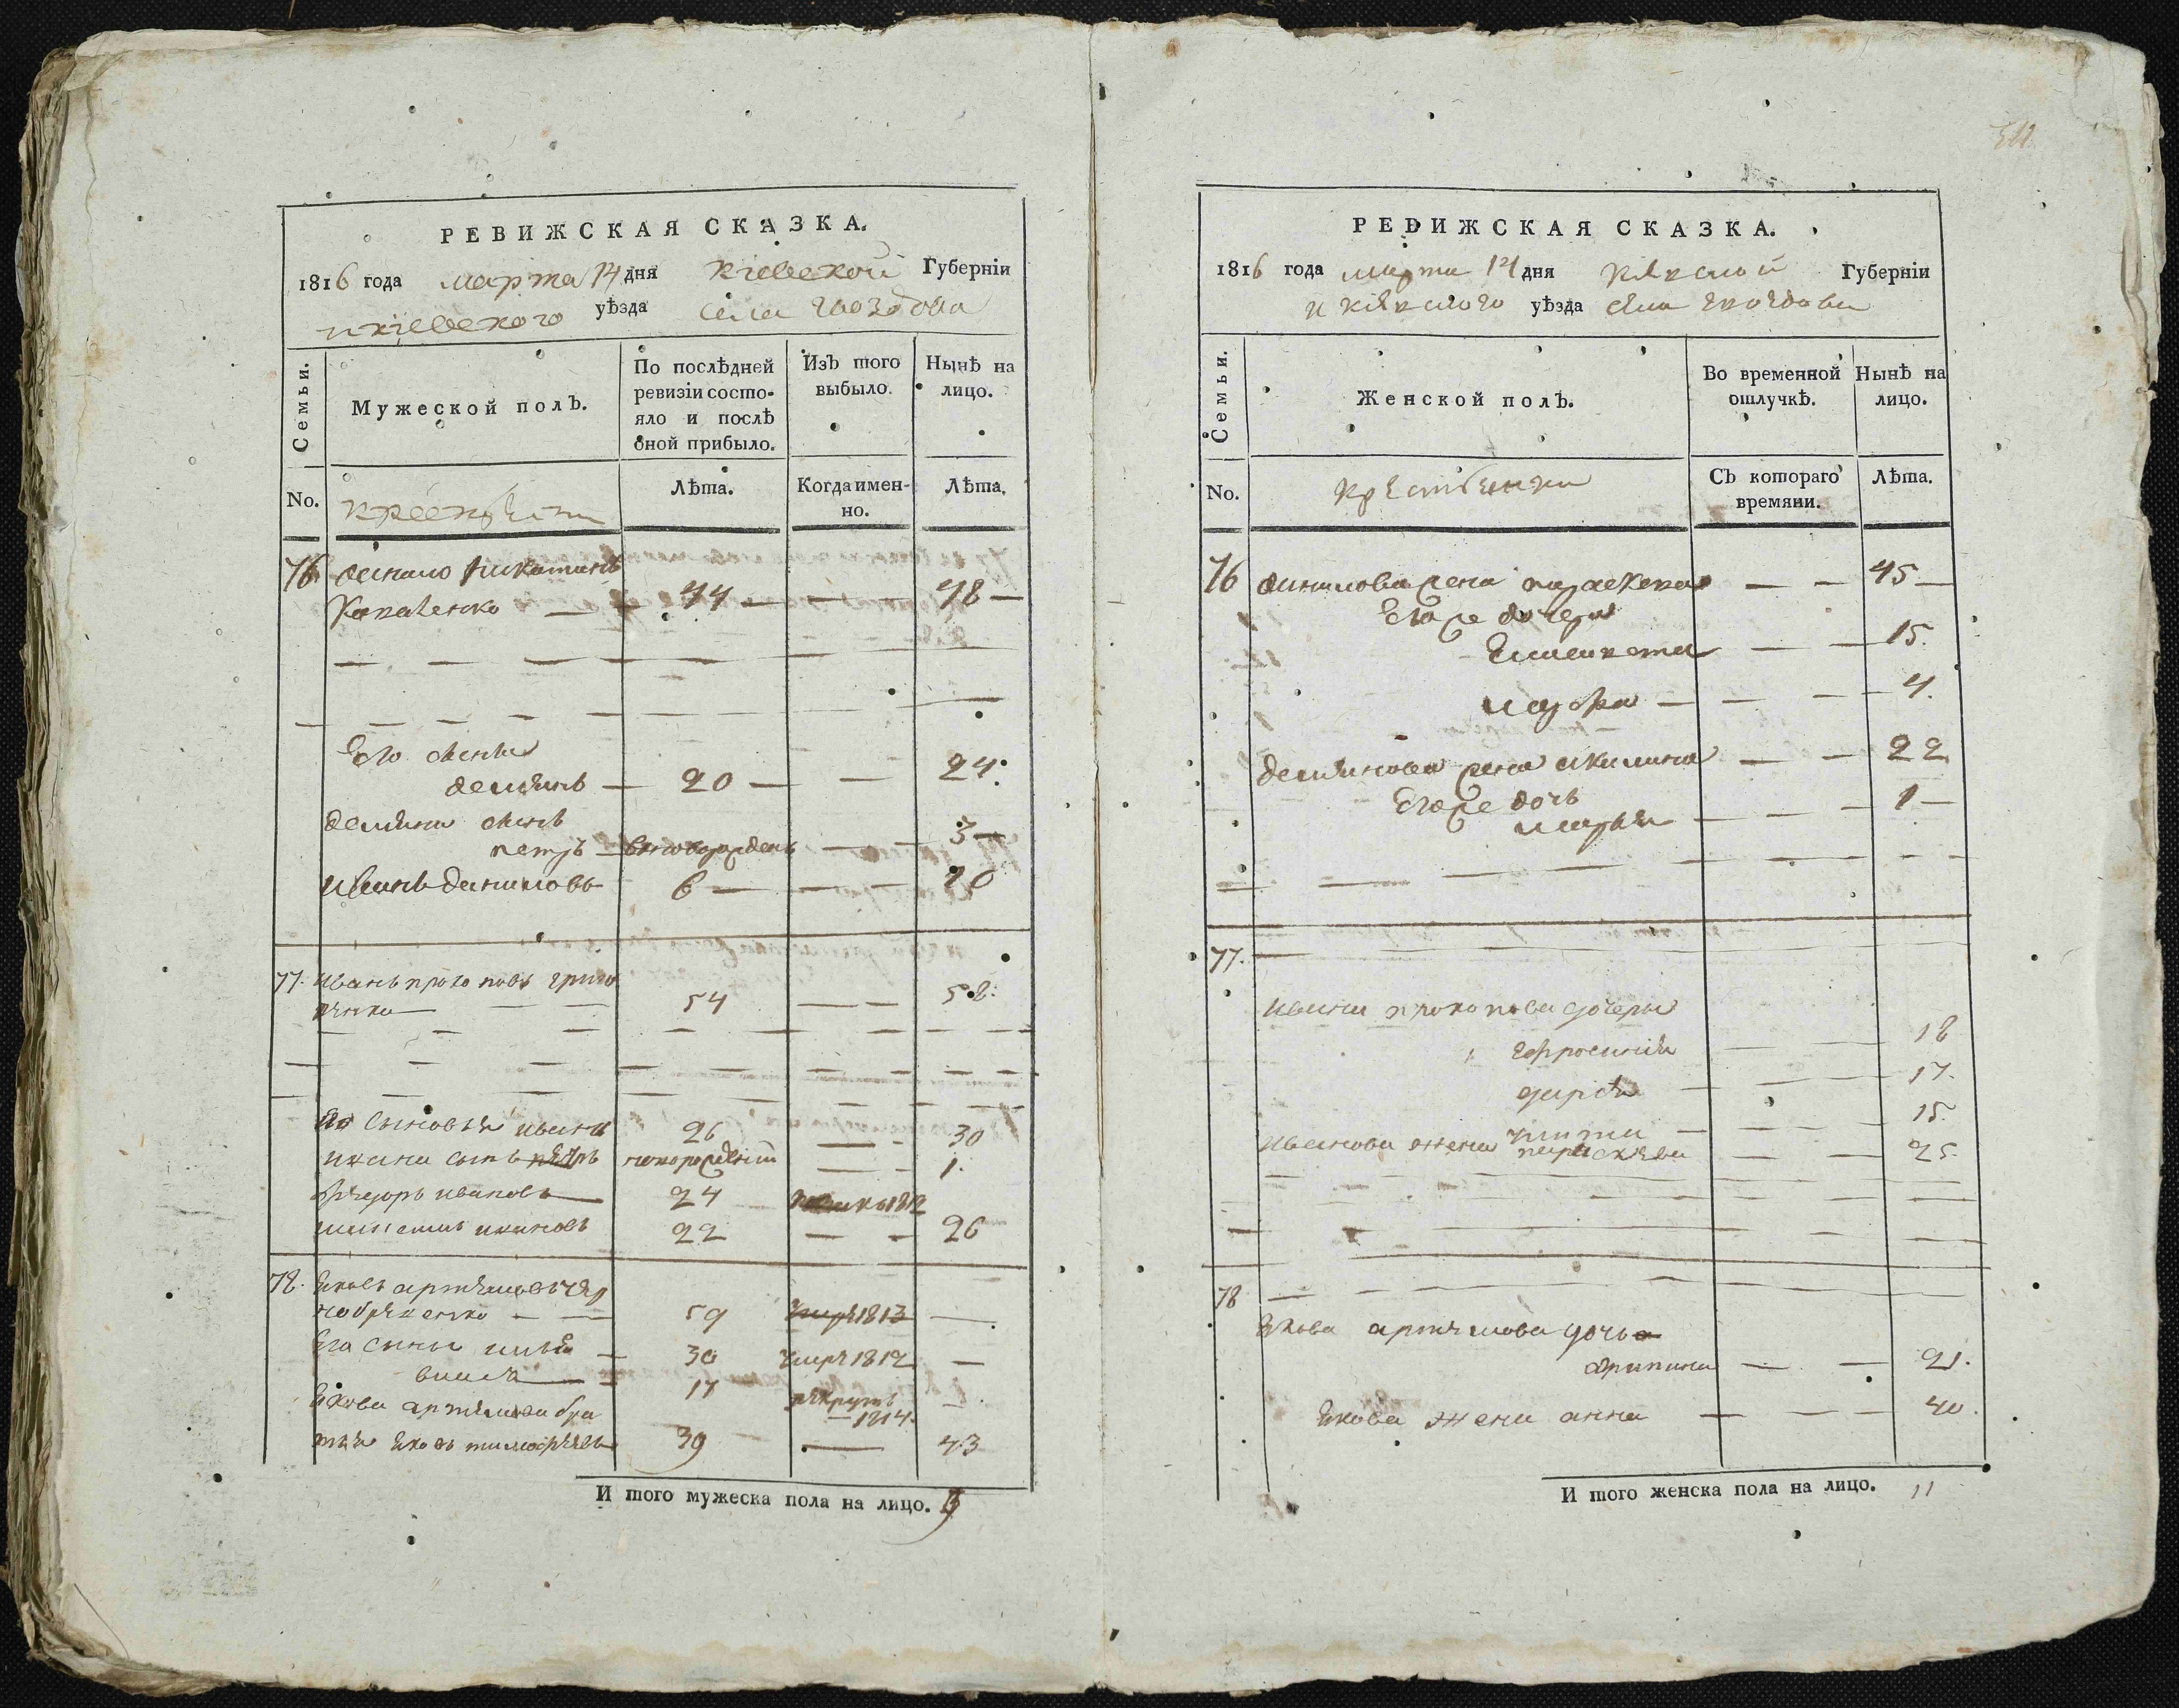 РЕВИЖСКАЯ СКАЗКА.
1816 года марта 14 дня киевской Губерніи
и киевского уѣзда села гвоздова
Семьи.
Мужеской полъ.
По послѣдней ревизіи состояло и послѣ оной прибыло.
Изъ того выбыло.
Нынѣ на лицо.
No.
Лѣта.
Когда именно.
Лѣта.
76 данило никитинъ
Коваленко — 44 — — 48 —
Его сынъ
демянъ — 20 — — 24
демяна сынъ
петръ — вновь рожденъ — 3 —
иванъ даниловъ 6 — — 10
77. иванъ прокоповъ григо
ренко — 54 — — 58.
Его сыновья иванъ 26 — 30
ивана сынъ новорожденый — 1.
федоръ ивановъ 24 1812
ивановъ 22 — — 26
78. Яковъ артемовъ чер
59 умре 1813 —
Его сыны илья — 30 умре 1812 —
17 рекрутъ —
— 1814.
Якова артемова бра
яковъ тимофеевъ 39 — 43
И того мужеска пола на лицо. 9
РЕВИЖСКАЯ СКАЗКА.
1816 года марта 14 дня Киевской Губерніи
и киевского уѣзда села гвоздова
Семьи.
Женской полъ.
Во временной отлучкѣ.
Нынѣ на лицо.
No.
крестьянки
Съ котораго времяни.
Лѣта.
76 данилова жена параскева — — 45 —
Его же дочери
Елисавета — — 15.
— — 4.
демянова жена акилина — — 22
Его же дочь
марья — — 1 —
77.
ивана прокопова дочери
ефросиния — 18
дарья — 17.
15.
иванова жена параскева — — 25.
78
Якова артемова дочь
агрипина — — 21.
Якова жена анна — — 40.
И того женска пола на лицо. 11